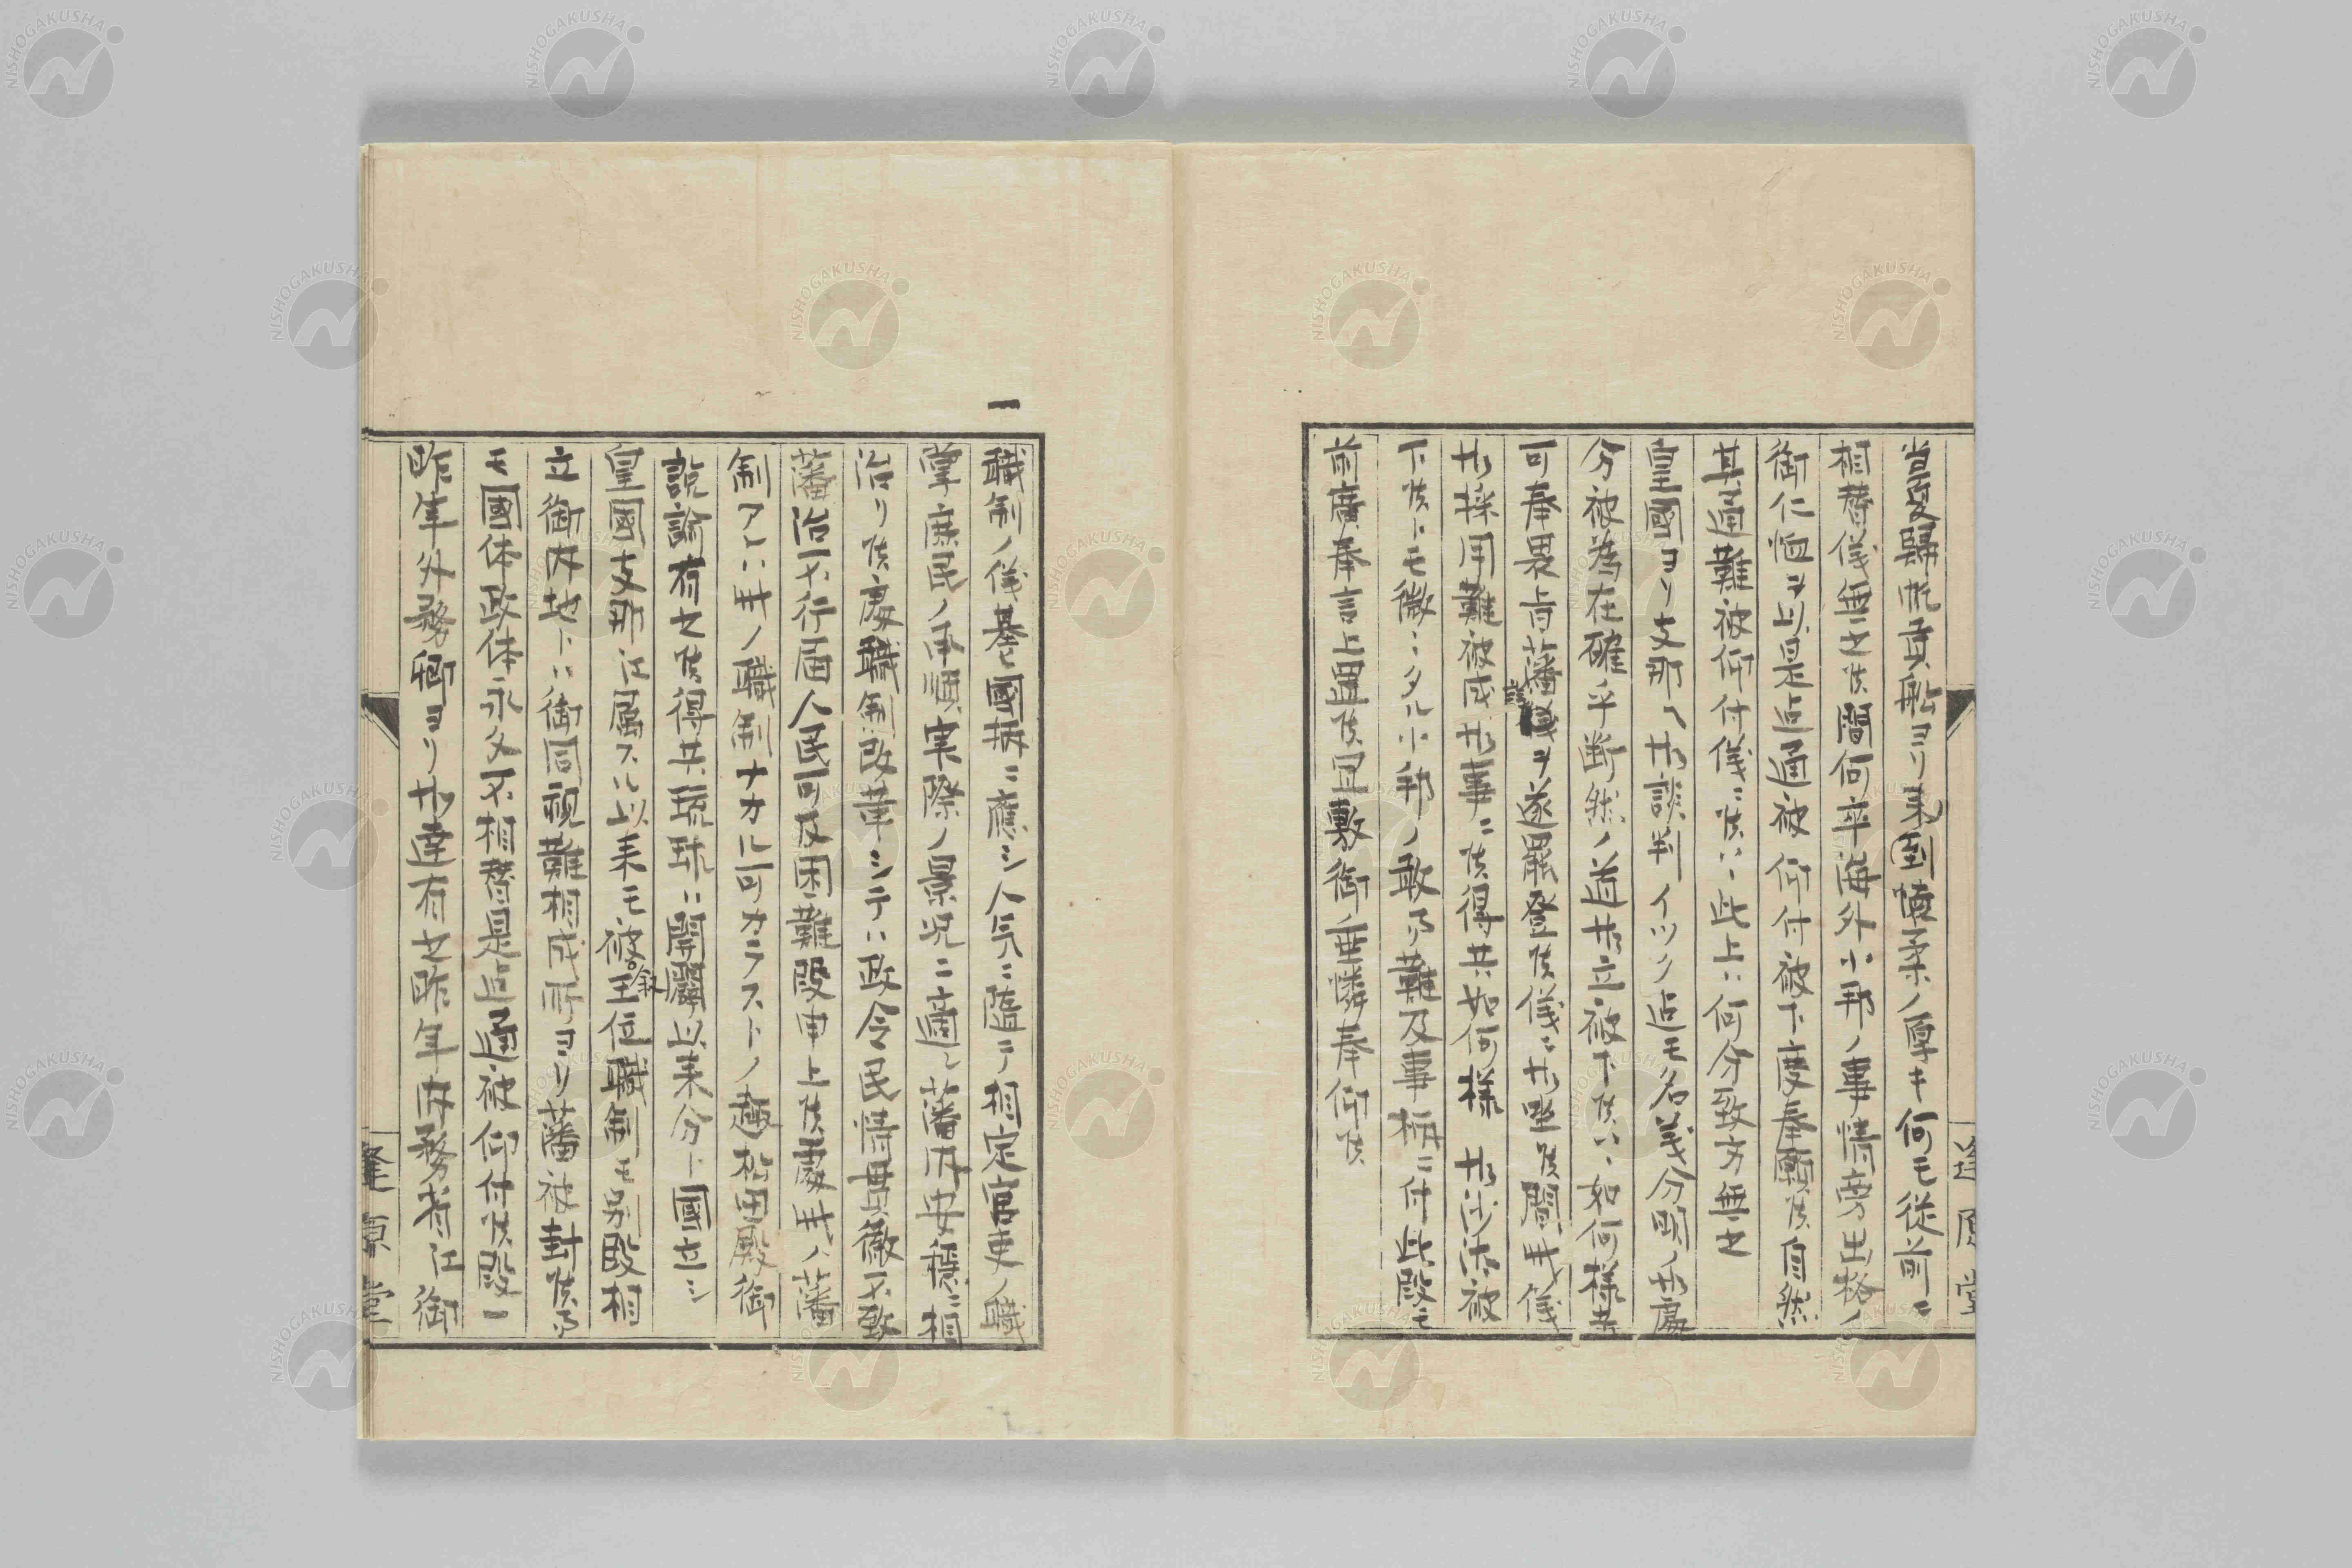 當夏歸帆貢船ヨリ來ル國懐柔ノ厚キ何モ從前ニ
相替儀無之候間何卒海外小邦ノ事情旁出格ノ
御仁恤ヲ以是迠通被仰付被下度奉願候自然
其通難被仰付儀ニ候ハヽ此上ハ何分致方無之
皇國ヨリ支那ヘ御談判イツソ迠モ名義分明ノ御處
分被為在確乎断然ノ道御立被下候ハヽ如何樣共
可奉畏旨藩議ヲ遂罷登候儀ニ御座候間此儀
御採用難被成御事ニ候得共如何樣御沙汰被
下候トモ微々タル小邦ノ敢テ難及事柄ニ付此段モ
前廣奉言上置候宜敷御垂憐奉仰候
一
職制ノ儀基國柄ニ應シ人気ニ隨テ相定官吏ノ職
掌庶民ノ承順実際ノ景況ニ適シ藩内安穏ニ相
治リ候處職制改革シテハ政令民情貫徹不致
藩治不行届人民可及困難段申上候處此ハ藩
制アレハ此ノ職制ナカル可カラストノ趣松田殿御
説諭有之候得共琉球ハ開闢以来分ト國立シ
皇國支那江属スル以来モ被叙王位職制モ別段相
立御内地トハ御同視難相成所ヨリ藩被封候テ
モ國体政体永久不相替是迠通被仰付候段一
昨年外務卿ヨリ御達有之昨年内務省江御
逢原堂
逢原堂
NISHOGAKUSHA